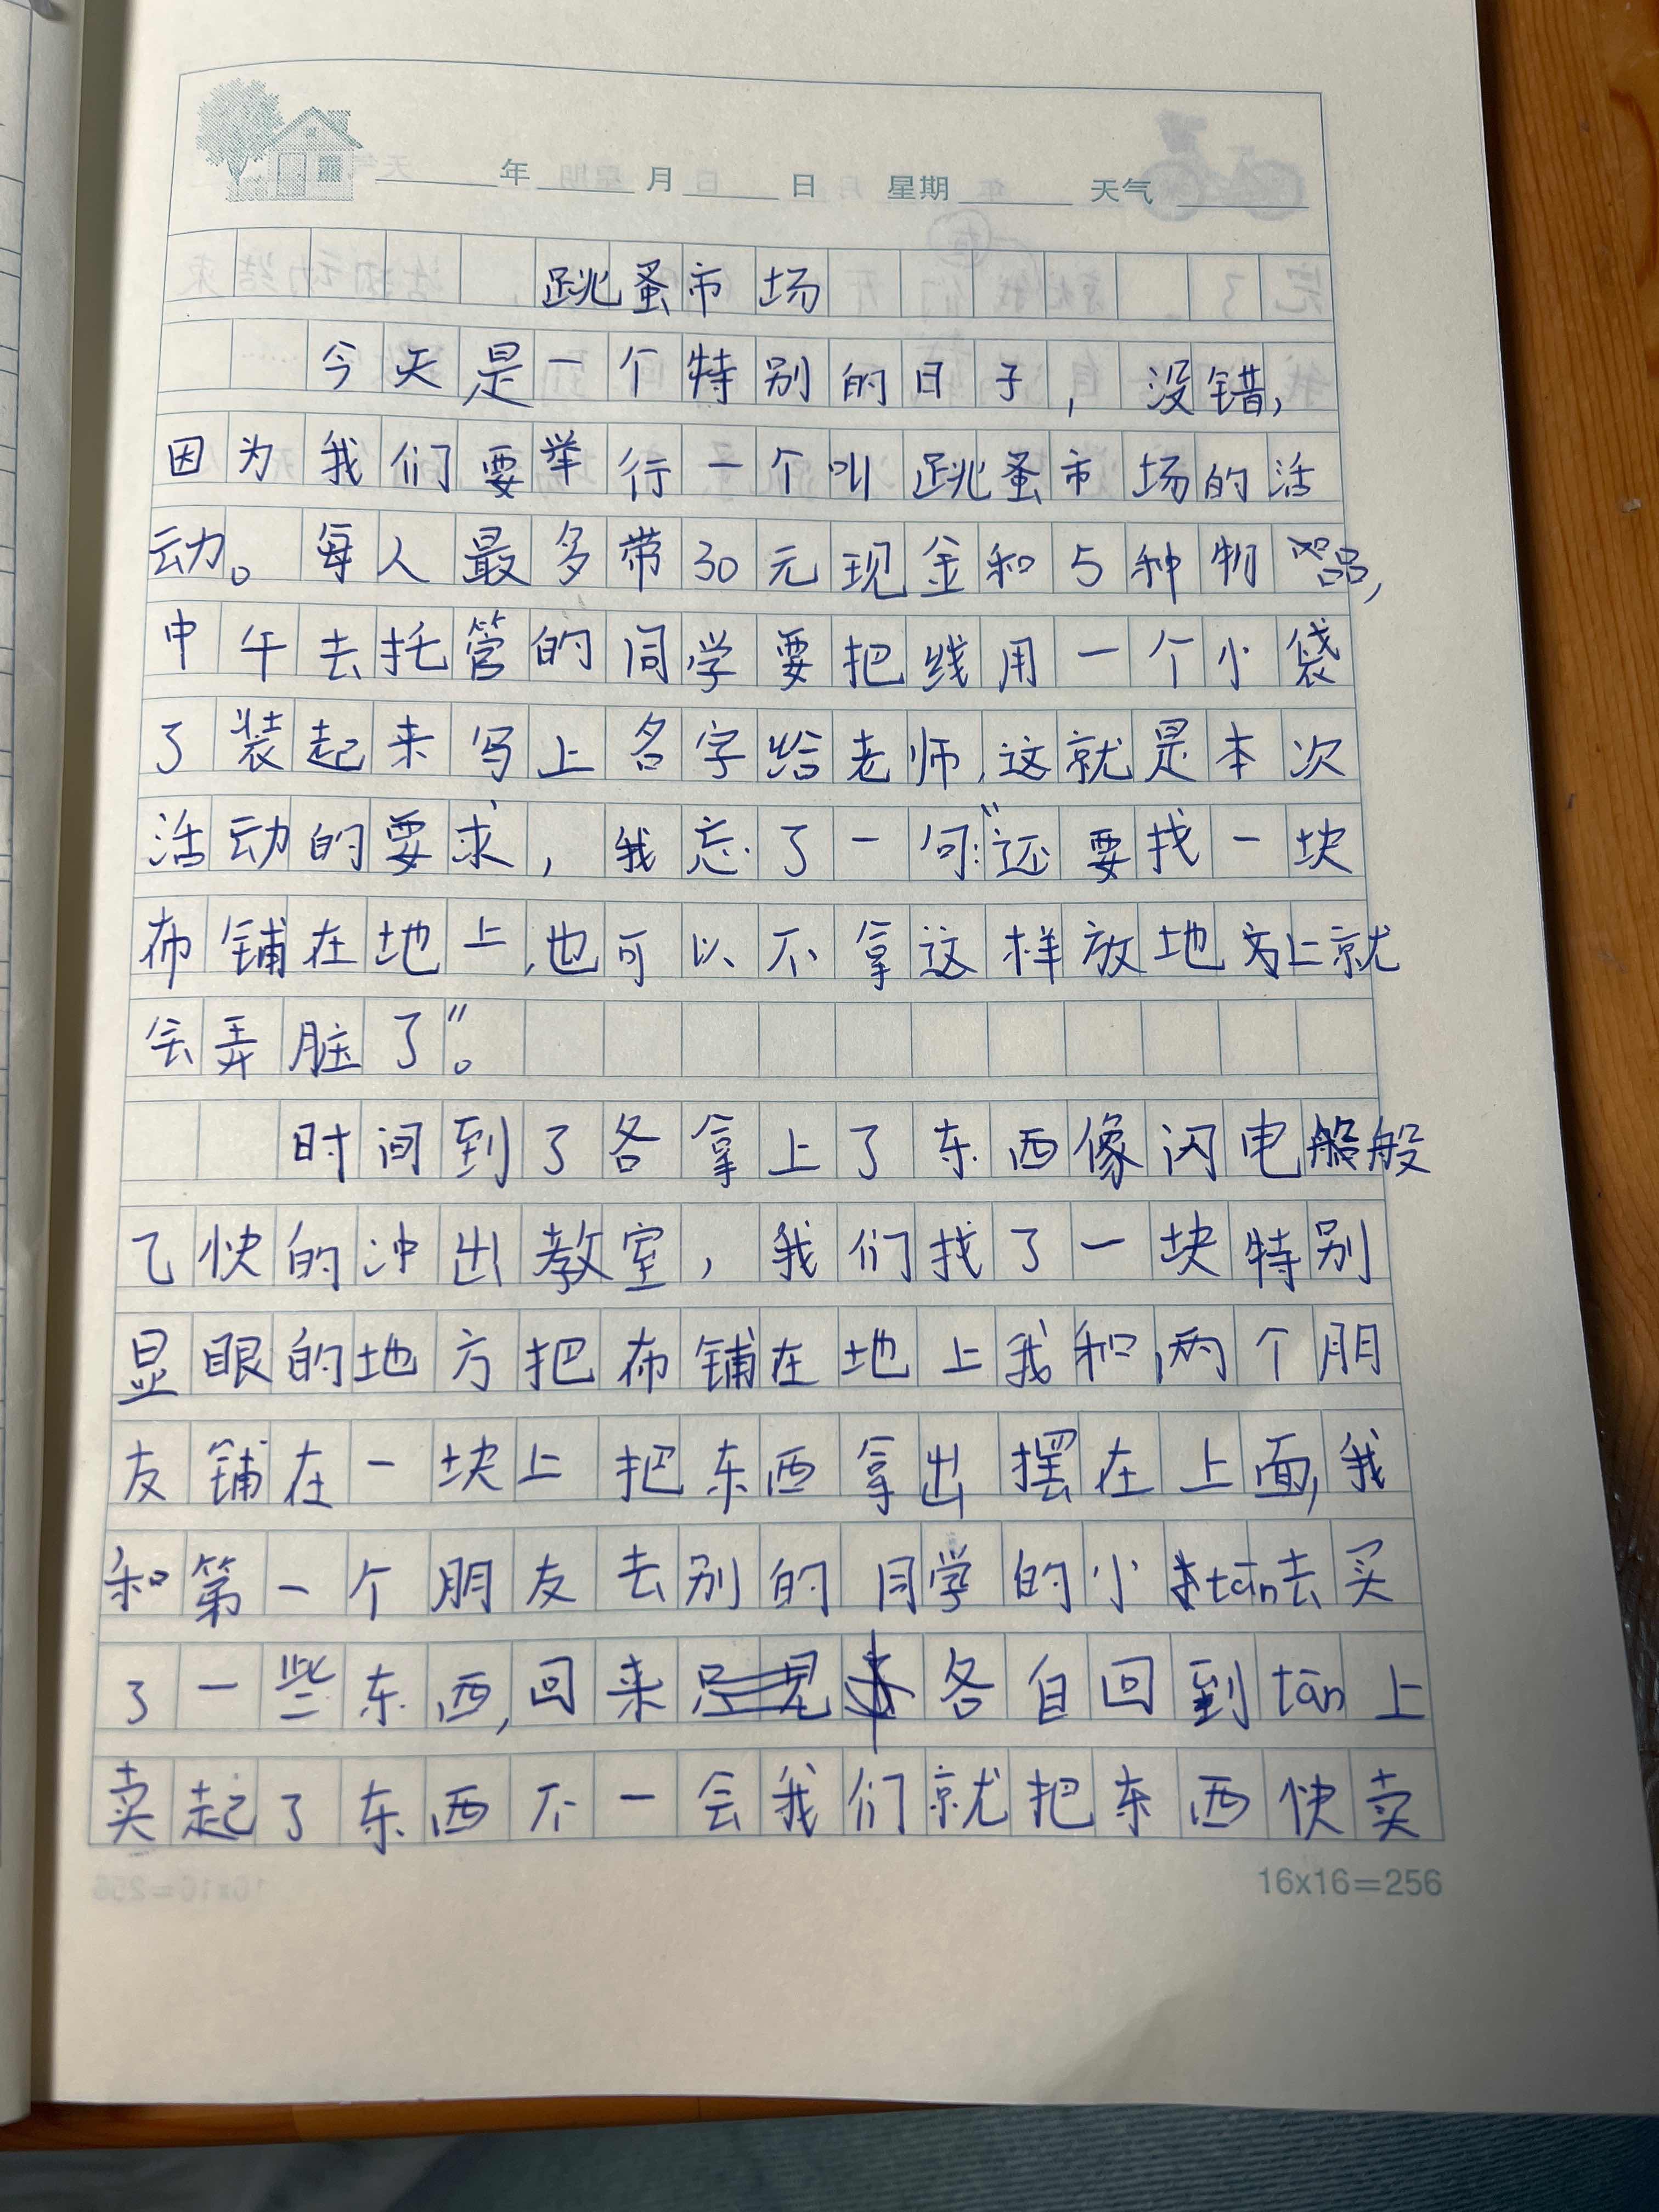 年 月 日 星期 天气
跳蚤市场
今天是一个特别的日子，没错，
因为我们要举行一个叫跳蚤市场的活
动。每人最多带30元现金和5种物品，
中午去托管的同学要把线用一个小袋
了装起来写上名字给老师，这就是本次
活动的要求，我忘了一句:“还要找一块
布铺在地上，也可以不拿这样放地上就
会弄脏了”。
时间到了各拿上了东西像闪电般
飞快的冲出教室，我们找了一块特别
显眼的地方把布铺在地上我和两个朋
友铺在一块上把东西拿出摆在上面，我
和第一个朋友去别的同学的小tān去买
了一些东西，回来各自回到tān上
卖起了东西不一会我们就把东西快卖
16x16=256